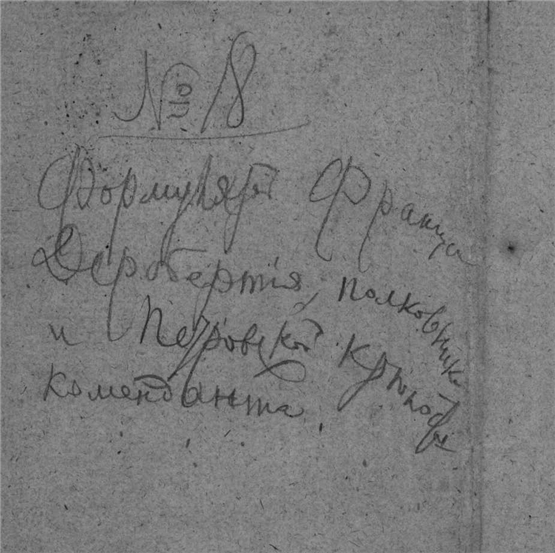 № 18
Формуляръ Франца
Деробертія, полковника
и Петровской крѣпости
коменданта.